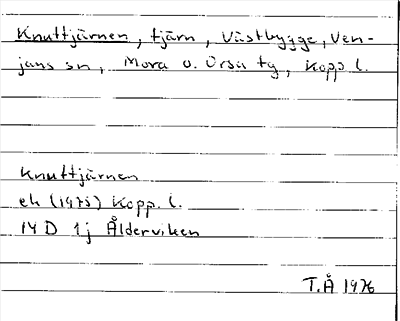 Knuttjärnen, tjärn, Västbygge, Ven-
jans sn, Mora o. Orsa tg, Kopp l.
Knuttjärnen
ek (1975) Kopp. l.
14 D 1j Ålderviken
T.Å 1976